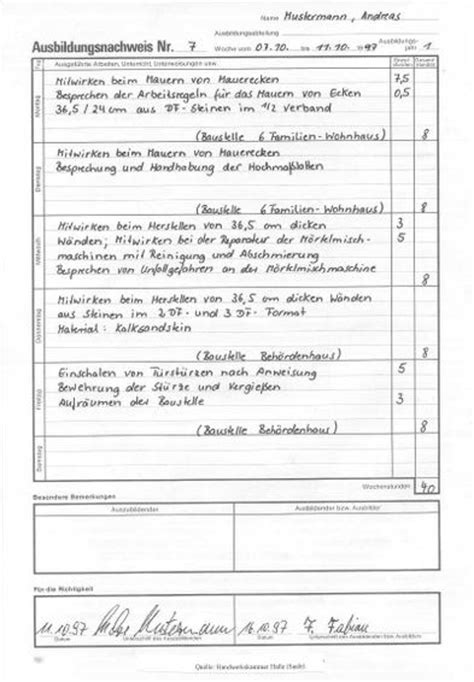 Name Mustermann, Andreas
Ausbildungsabteilung
Ausbildungsnachweis Nr. 7 Woche vom 07.10. bis 11.10. 1997 Ausbildungsjahr 1
Tag Ausgeführte Arbeiten, Unterricht, Unterweisungen usw. Einzelstunden Gesamtstunden
Montag
Mitwirken beim Mauern von Mauerecken 7,5
Besprechen der Arbeitsregeln für das Mauern von Ecken 0,5
36,5 / 24 cm aus DF-Steinen im 1/2 Verband
(Baustelle 6 Familien-Wohnhaus) 8
Dienstag
Mitwirken beim Mauern von Mauerecken
Besprechung und Handhabung der Hochmaßlatten
(Baustelle 6 Familien-Wohnhaus) 8
Mittwoch
Mitwirken beim Herstellen von 36,5 cm dicken 3
Wänden; Mitwirken bei der Reparatur der Mörtelmisch- 5
maschinen mit Reinigung und Abschmierung
Besprechen von Unfallgefahren an der Mörtelmischmaschine 8
Donnerstag
Mitwirken beim Herstellen von 36,5 cm dicken Wänden
aus Steinen im 2 DF- und 3 DF- Format
Material: Kalksandstein
(Baustelle Behördenhaus) 8
Freitag
Einschalen von Türstürzen nach Anweisung 5
Bewehrung der Stürze und Vergießen
Aufräumen der Baustelle 3
(Baustelle Behördenhaus) 8
Samstag
Wochenstunden 40
Besondere Bemerkungen
Auszubildender Ausbildender bzw. Ausbilder
Für die Richtigkeit
11.10.97 Mustermann 16.10.97 F. Fabian
Datum Unterschrift des Auszubildenden Datum Unterschrift des Ausbildenden bzw. Ausbilders
Quelle: Handwerkskammer Halle (Saale)